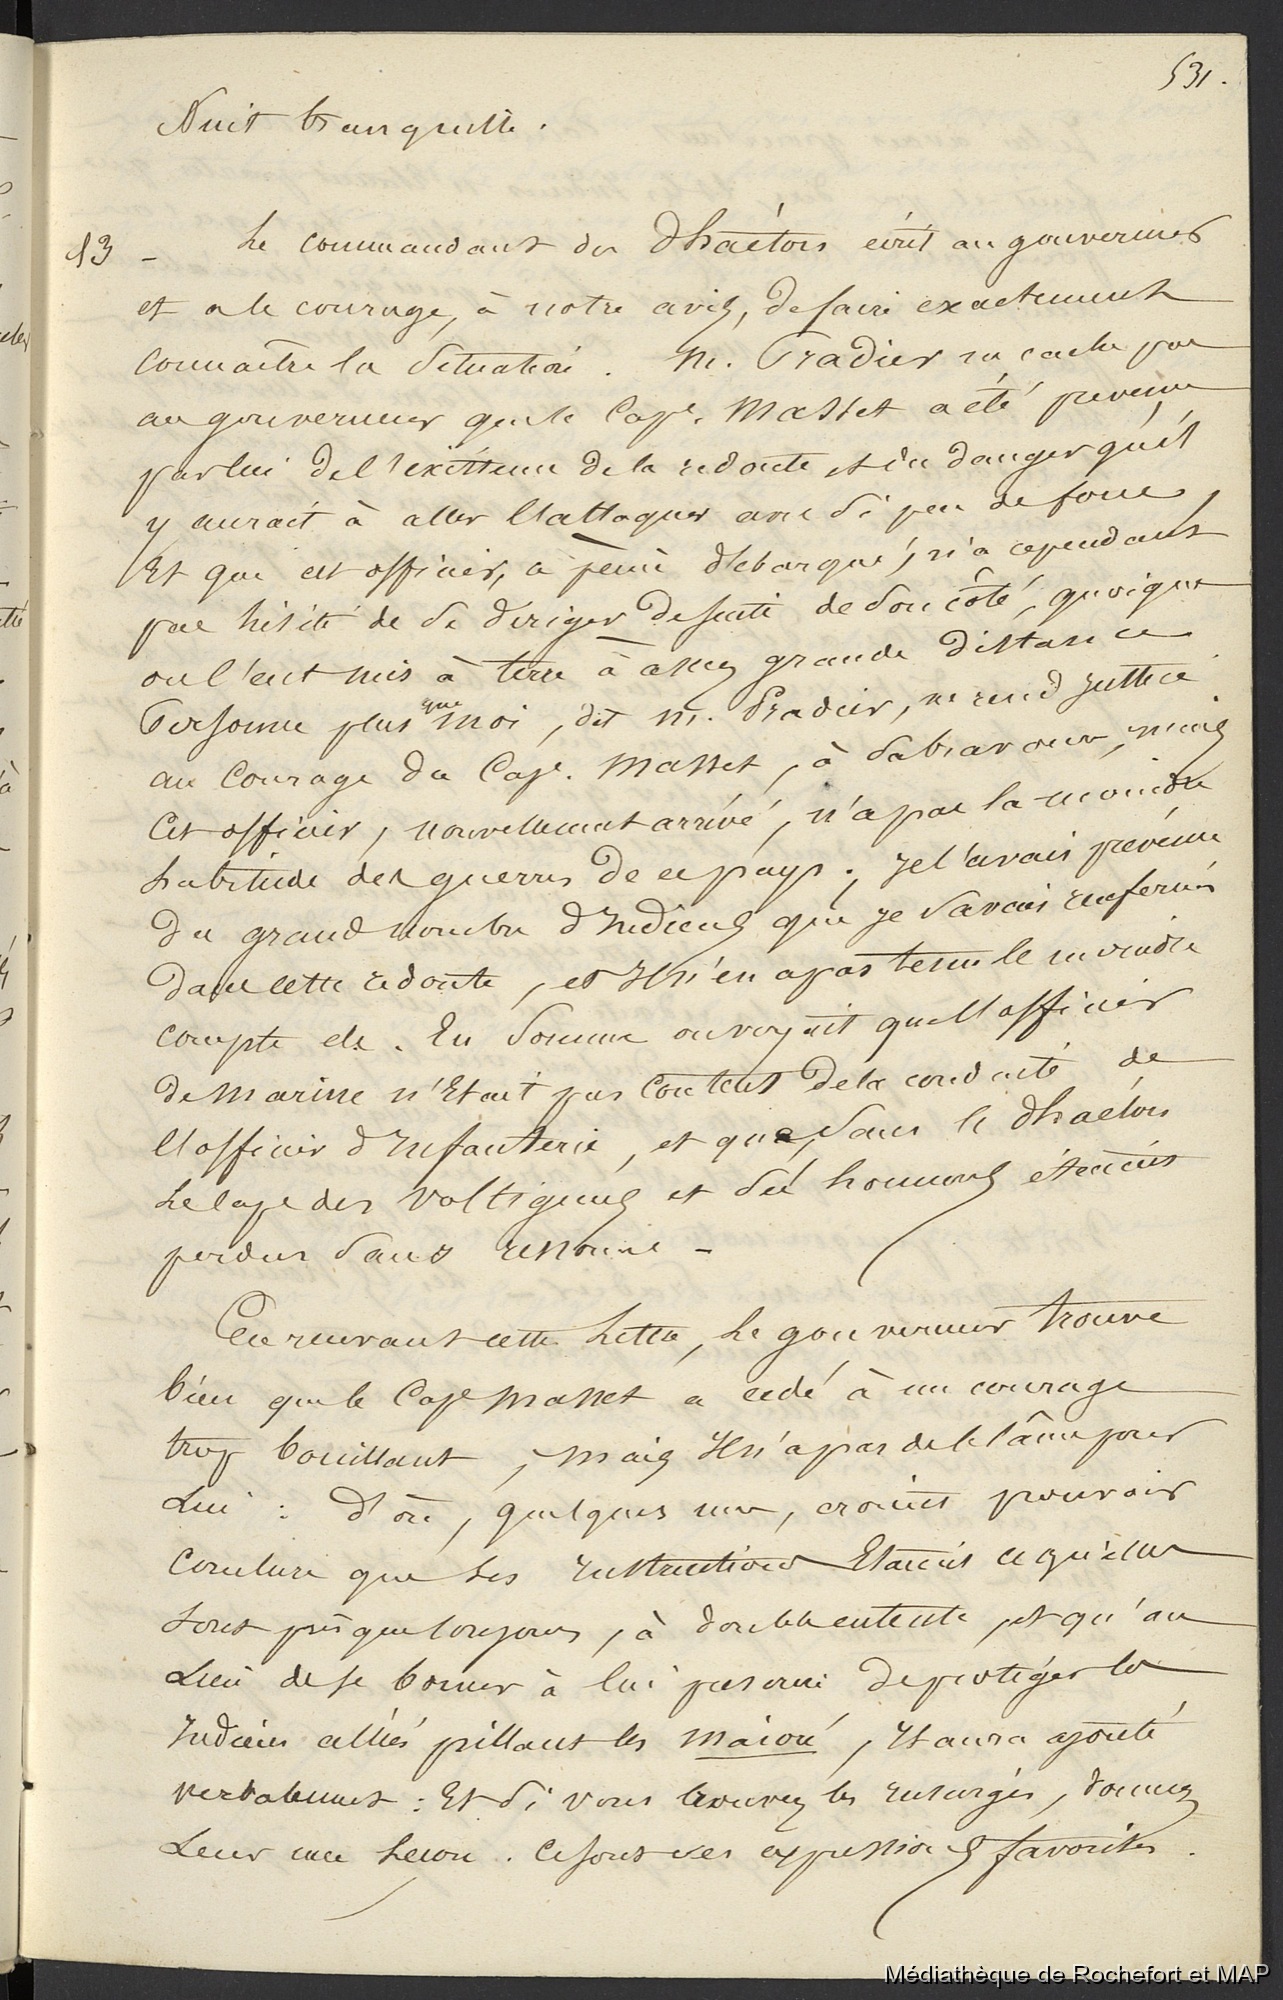 531.
Nuit tranquille.
13 - Le commandant du Phaéton écrit au gouverneur
et a le courage, à notre avis, de faire exactement
connaître la situation. M. Pradier ne cache pas
au gouverneur que le Cape. Masset a été prévenu
par lui de l'existence de la redoute et du danger qu'il
y aurait à aller l'attaquer avec si peu de forces,
Et que cet officier, à peine débarqué, n'a cependant
pas hésité de se diriger de suite de son côté, quoique
on l'eut mis à terre à assez grande distance.
Personne plus que moi, dit M. Pradier, ne rend justice
au courage du Cape. Masset, à sa bravoure, mais
Cet officier, nouvellement arrivé, n'a pas la moindre
habitude des guerres de ce pays. ; je l'avais prévenu
du grand nombre d'Indiens que je savais renfermés
dans cette redoute, et Il n'en a pas tenu le moindre
compte etc. En somme on voyait que l'officier
de marine n'Etait pas content de la conduite de
l'officier d'Infanterie, et que, sans le Phaéton
Le Cape des Voltigeurs et ses hommes étaient
perdus sans ressource -
En recevant cette Lettre, Le gouverneur trouve
bien que le Cape Masset a cédé à un courage
trop bouillant, mais Il n'a pas de blâme pour
Lui : d'où, quelques uns, croient pouvoir
Conclure que Les Instructions Etaient ce qu'elles
sont presque toujours, à double entente, et qu'au
Lieu de se borner à lui prescrire de protéger les
Indiens alliés pillant les maioré, Il aura ajouté
verbalement : Et si vous trouvez les insurgés, donnez
Leur une Leçon. Ce sont ses expressions favorites.
Médiathèque de Rochefort et MAP